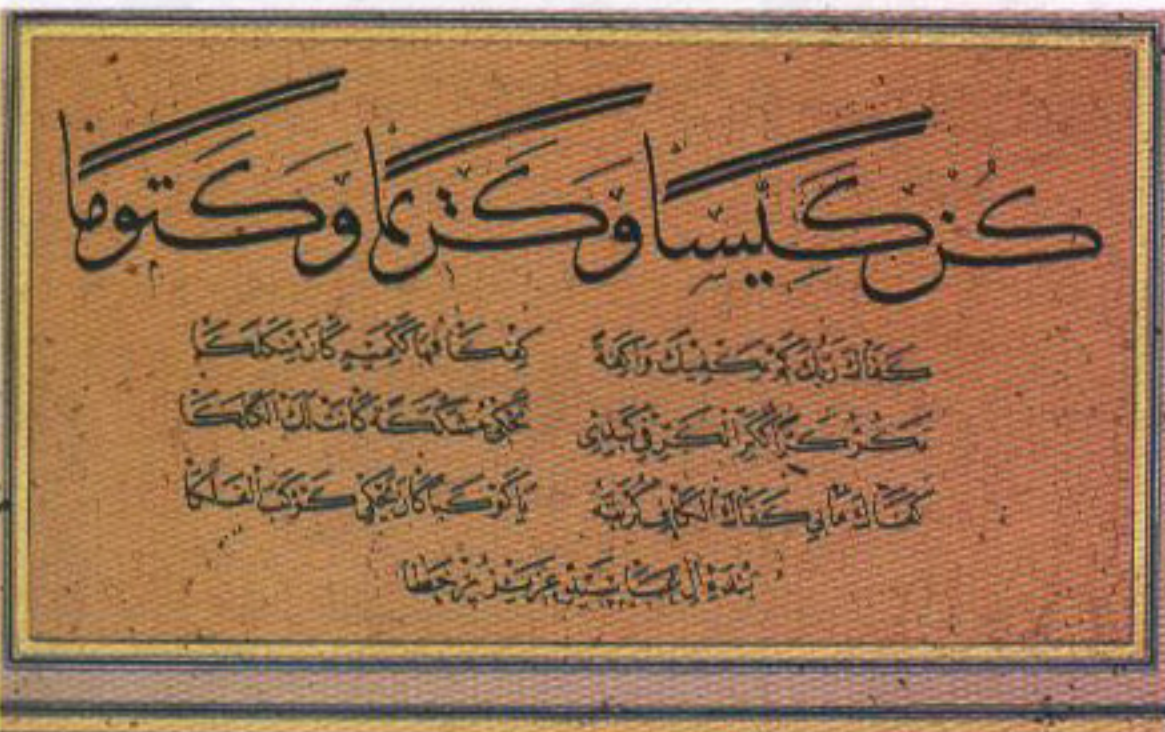 كُنْ كَيِّسًا وَكَرِيمًا وَكَتُومًا
كَفَاكَ رَبُّكَ كَمْ يَكْفِيكَ وَاكِفَةً كِفْكَافُهَا كَكَمِينٍ كَانَ مِنْ كَلَكَا
تَكُرُّ كَرًّا كَكَرِّ الْكَرِّ فِي كَبَدِي تَحْكِي مُشَكْشَكَةً لَكَ
كَفَاكَ مَا بِي كَفَاكَ الْكَافُ كُرْبَتَهُ يَا كَوْكَبًا كَانَ يَحْكِي كَوْكَبَ الْفَلَكَا
بندۀ آل عبا عزيز پر خطا